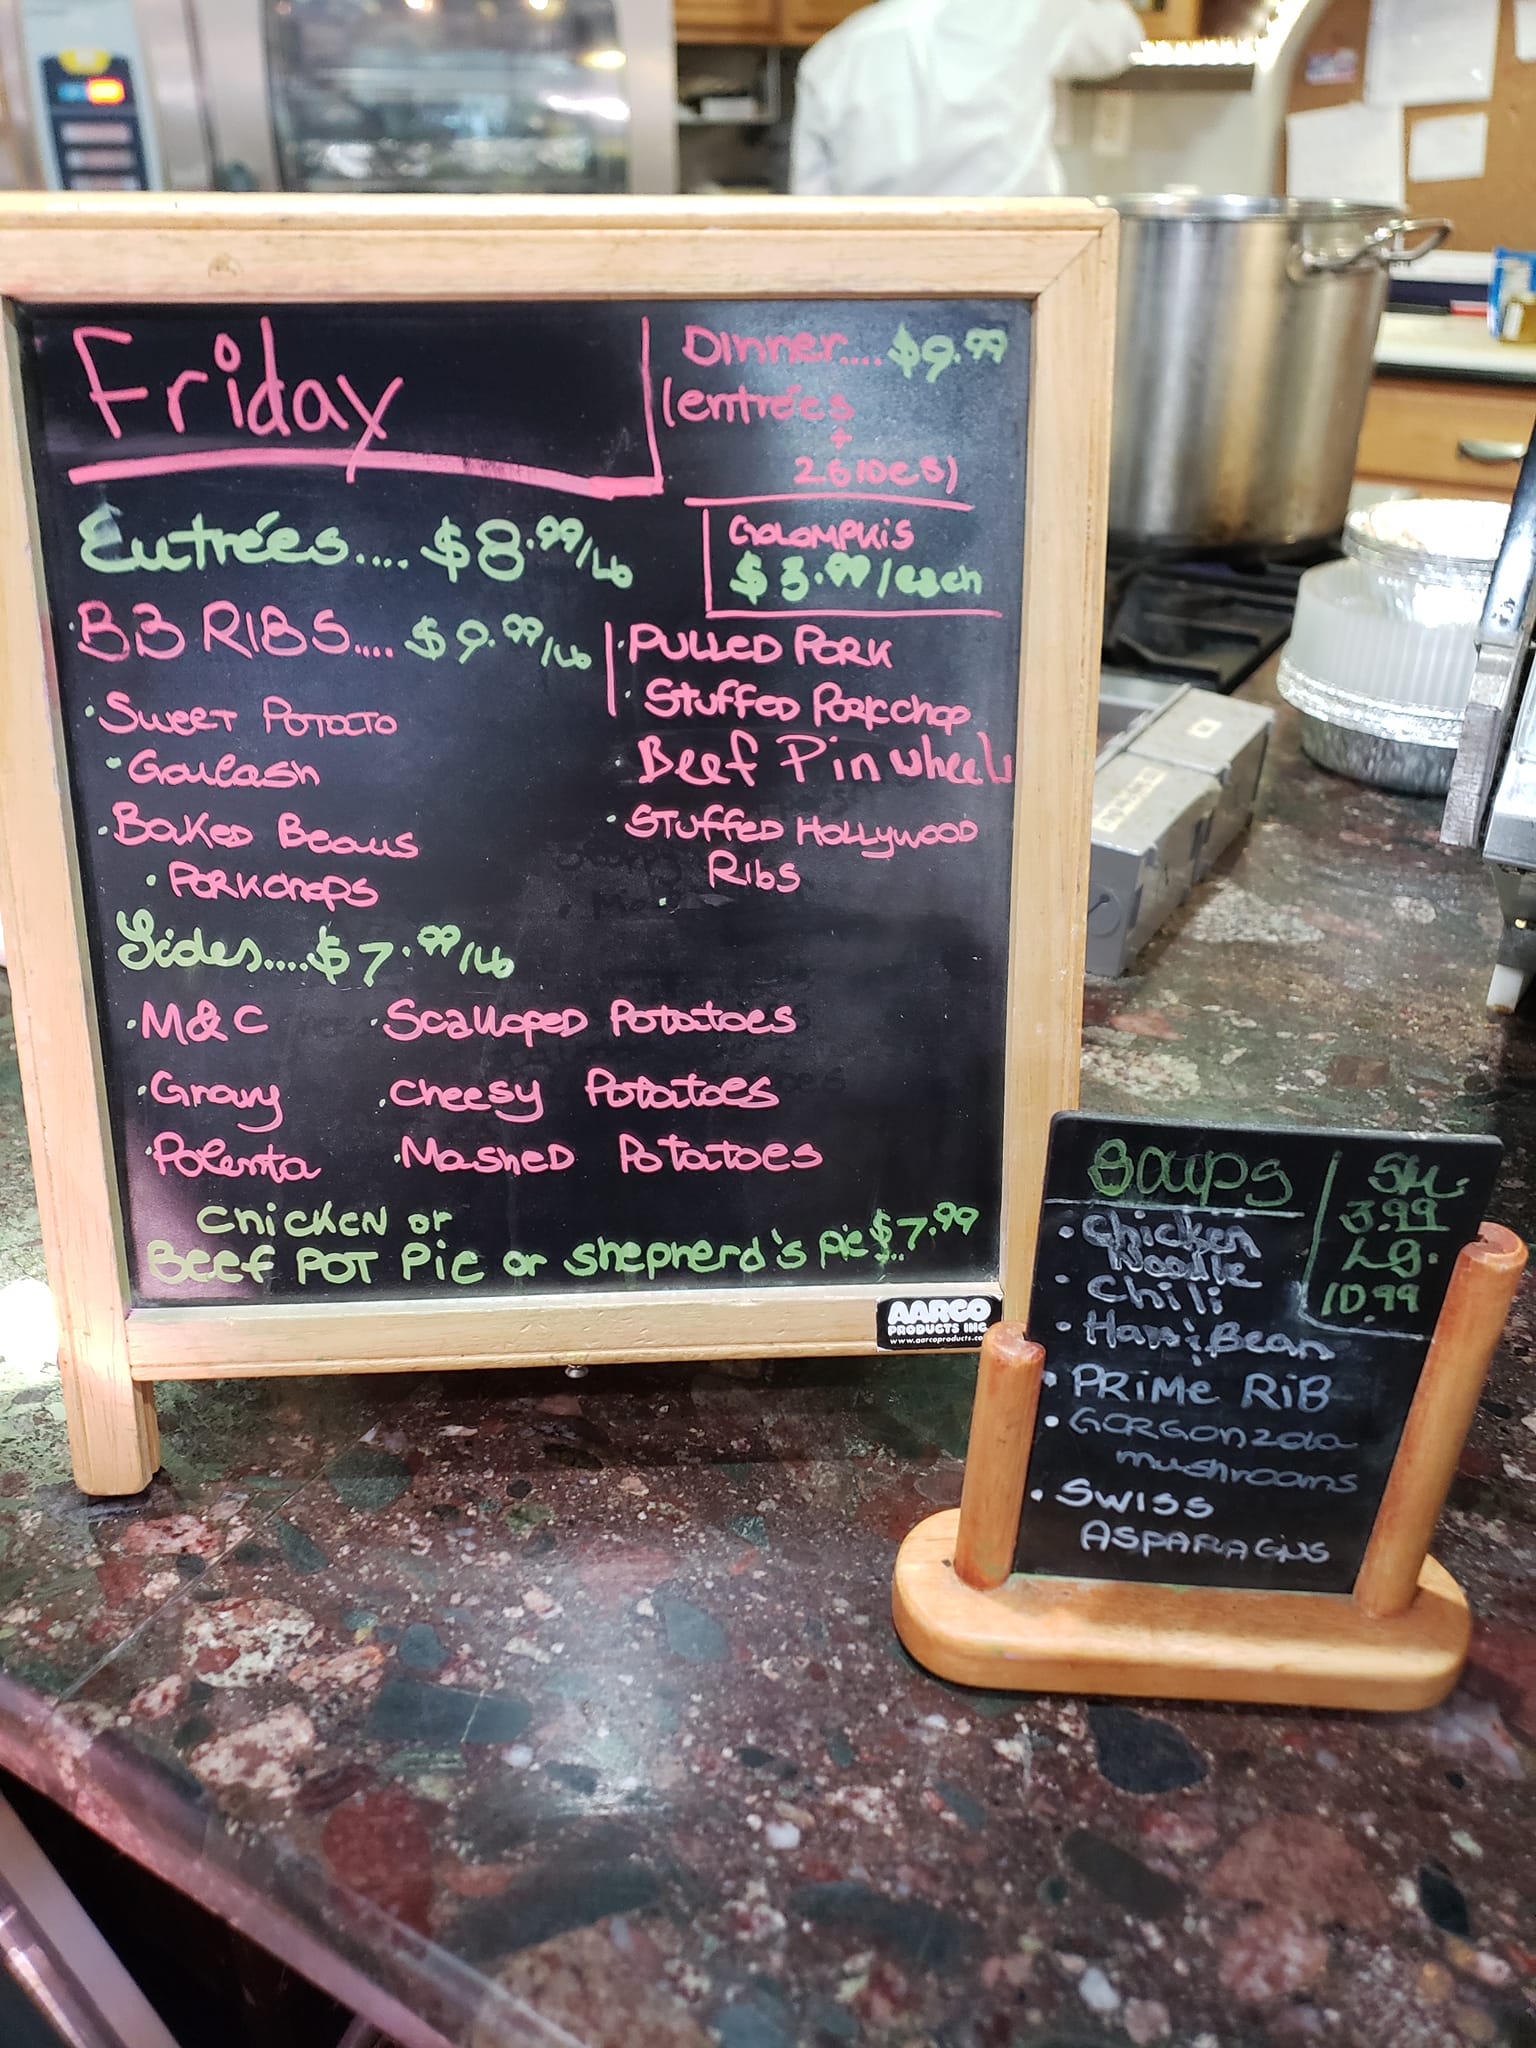 Friday
Dinner.... $9.99
(entrées
+
2 sides)
Entrées.... $8.99/Lb
Golompkis
$3.99/each
BB RIBS.... $9.99/Lb
Sweet Potato
Goulash
Baked Beans
Porkchops
Pulled Pork
Stuffed Porkchop
Beef Pinwheels
Stuffed Hollywood
Ribs
Sides.... $7.99/Lb
M&C
Scalloped Potatoes
Gravy
Cheesy Potatoes
Polenta
Mashed Potatoes
Chicken or
Beef Pot Pie or Shepherd's pie $7.99
AARCO
PRODUCTS INC
www.aarcoproducts.co
Soups
Sm.
3.99
Lg.
10.99
Chicken
Noodle
Chili
Ham & Bean
Prime Rib
Gorgonzola
mushrooms
Swiss
Asparagus